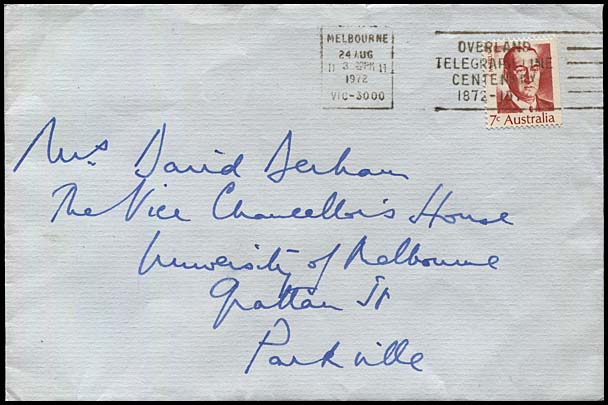 MELBOURNE
24 AUG
1972
VIC-3000
OVERLAND
TELEGRAPH LINE
CENTENARY
1872-19
7c Australia
Mrs David Derham
The Vice Chancellor's House
University of Melbourne
Grattan St
Parkville